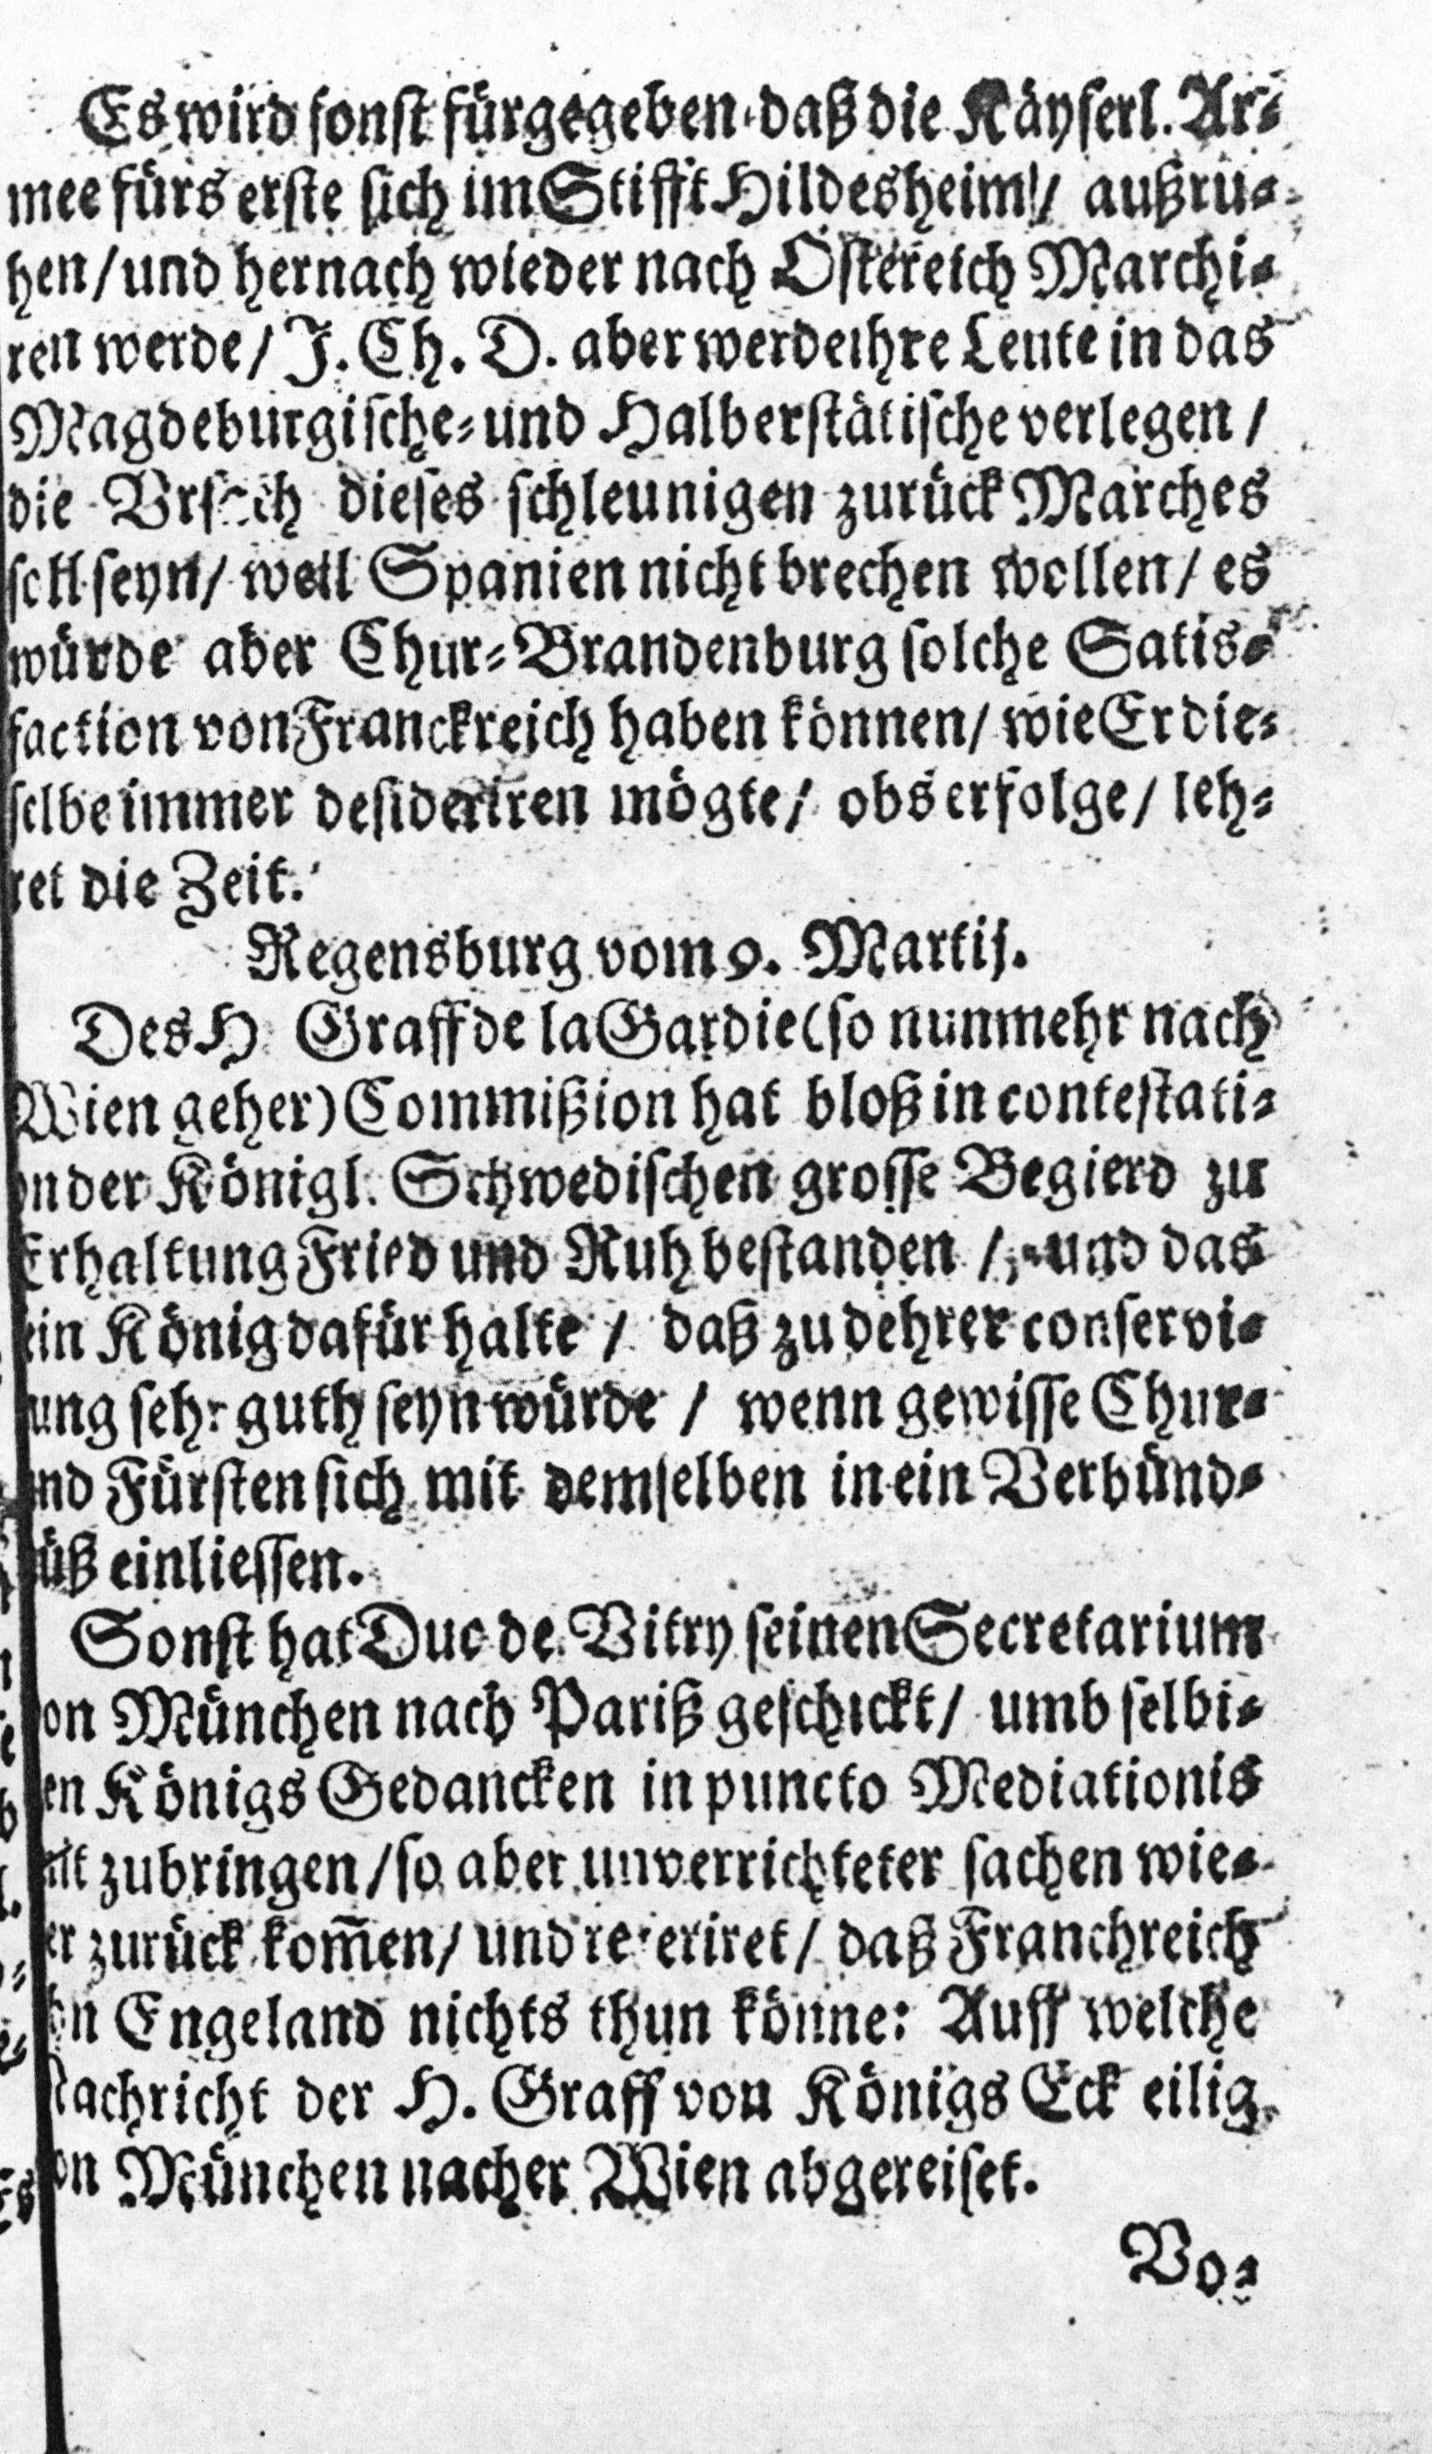 Es wird sonst fürgegeben daß die Käyserl. Ar-
mee fürs erste sich im Stifft Hildesheim / außru-
hen / und hernach wieder nach Östereich Marchi-
ren werde / J. Ch. D. aber werde ihre Leute in das
Magdeburgische- und Halberstätische verlegen /
die Vrsach dieses schleunigen zurück Marches
soll seyn / weil Spanien nicht brechen wollen / es
würde aber Chur-Brandenburg solche Satis-
faction von Franckreich haben können / wie Er die-
selbe immer desideriren mögte / obs erfolge / leh-
ret die Zeit.
Regensburg vom 9. Martij.
Des H Graff de la Gardie (so nunmehr nach
Wien geher) Commißion hat bloß in contestati-
on der Königl. Schwedischen grosse Begierd zu
Erhaltung Fried und Ruh bestanden / und das
ein König dafür halte / daß zu dehrer conservi-
ung sehr guth seyn würde / wenn gewisse Chur-
nd Fürsten sich mit demselben in ein Verbünd-
üß einliessen.
Sonst hat Duc de Vitry seinen Secretarium
on München nach Pariß geschickt / umb selbi-
en Königs Gedancken in puncto Mediationis
mit zubringen / so aber unverrichteter sachen wie-
er zurück kom̃en / und referiret / daß Franchreich
on Engeland nichts thun könne: Auff welche
Nachricht der H. Graff von Königs Eck eilig
on München nacher Wien abgereiset.
Vo-